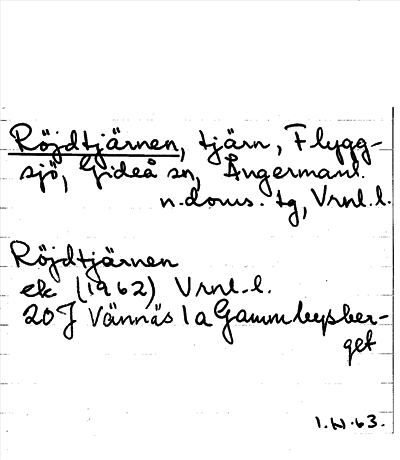 Röjdtjärnen, tjärn, Flygg-
sjö, Gideå sn, Ångermanl.
n. doms. tg, Vrnl.l.
Röjdtjärnen
ek (1962) Vrnl.l.
20J Vännäs 1a Gammbysber-
get
1.IV.63.